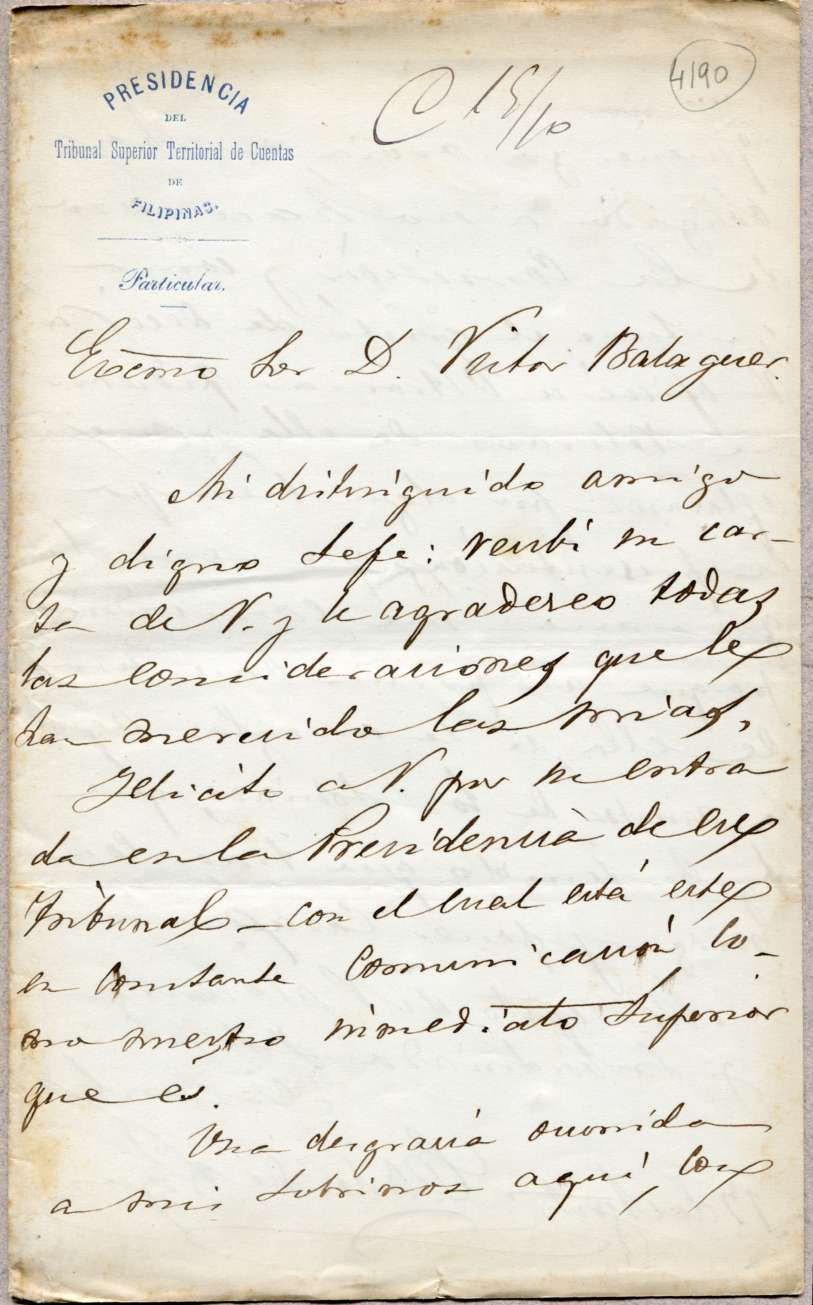 PRESIDENCIA
DEL
Tribunal Superior Territorial de Cuentas
DE
FILIPINAS.
Particular.
C 15/10
4190
Excmo Sor D. Victor Balaguer.
Mi distinguido amigo
y digno Gefe: recibi su car-
ta de V. y le agradezco todas
las consideraciones que le
han merecido las mias.
Felicito a V. por su entra
da en la Presidencia de ese
Tribunal - con el cual está este
en constante comunicación co-
mo nuestro inmediato Superior
que es.
Una desgracia ocurrida
a mis sobrinos aquí, con